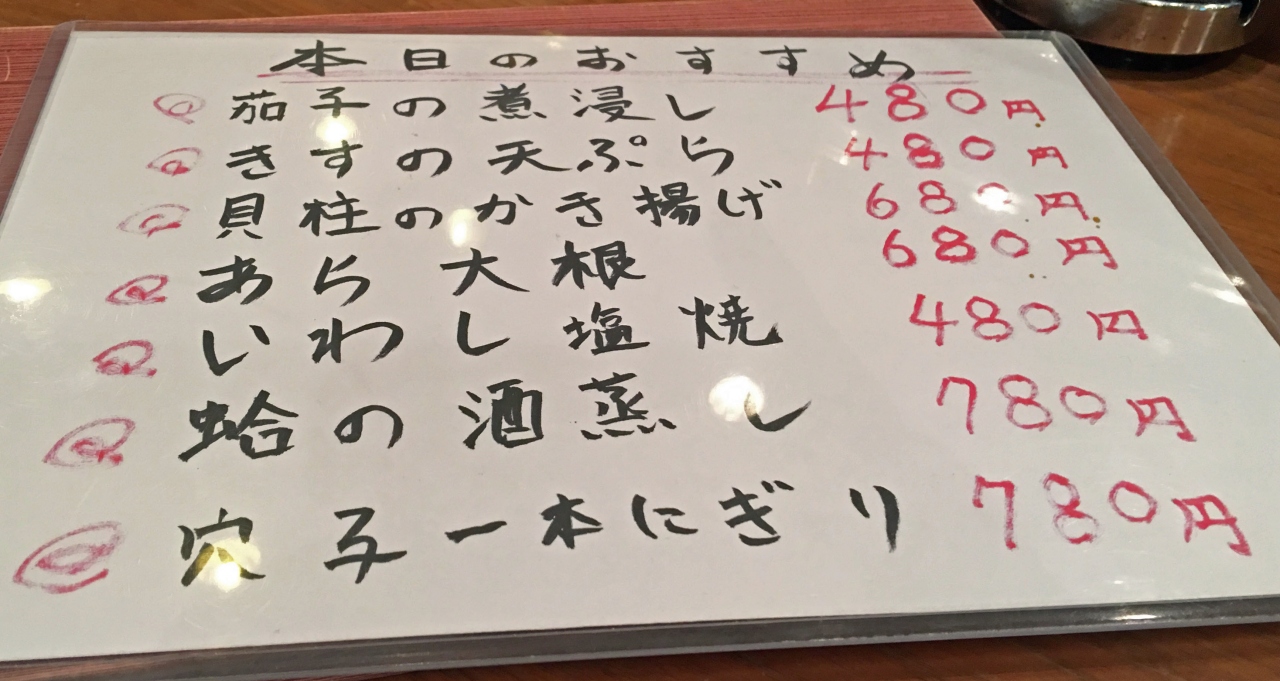 本日のおすすめ
茄子の煮浸し 480円
きすの天ぷら 480円
貝柱のかき揚げ 680円
あら大根 680円
いわし塩焼 480円
蛤の酒蒸し 780円
穴子一本にぎり 780円